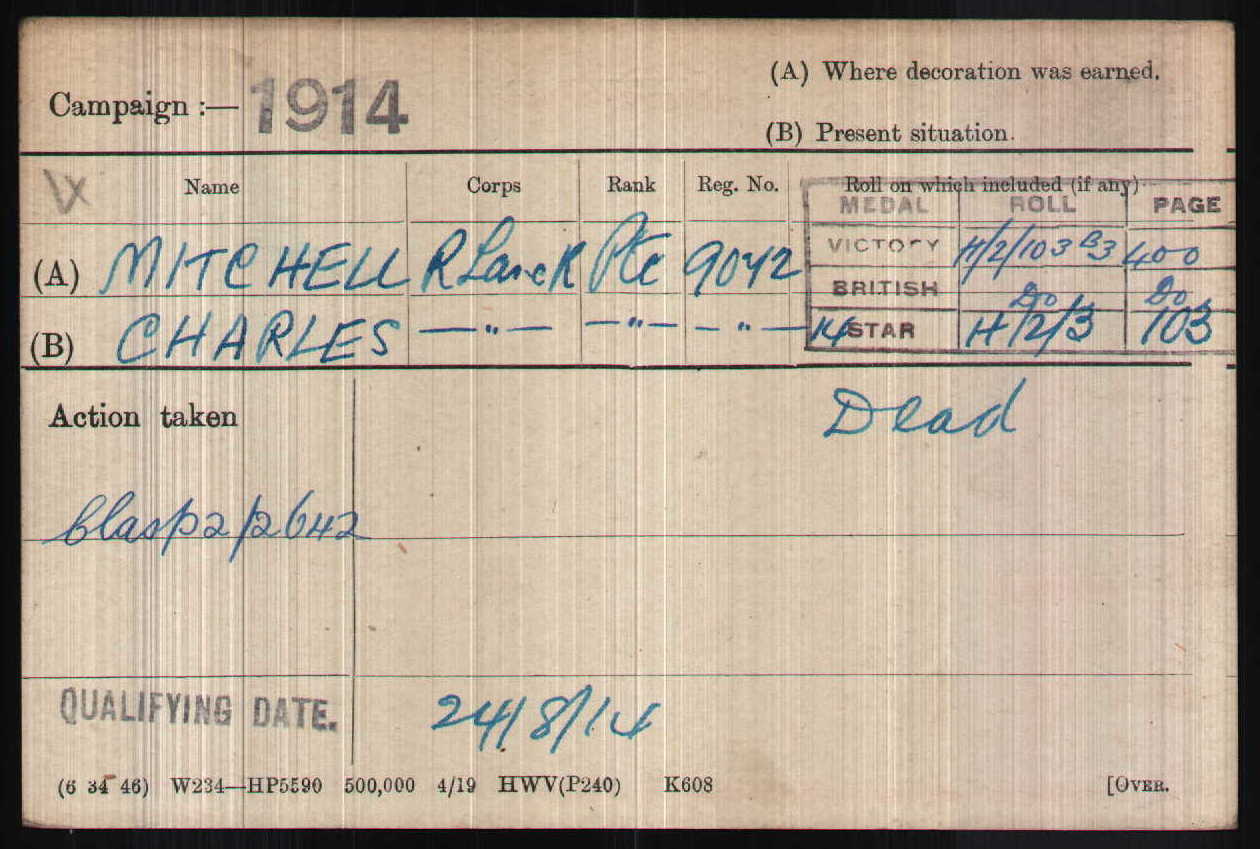 (A) Where decoration was earned.
Campaign :— 1914
(B) Present situation.
Name Corps Rank Reg. No. Roll on which included (if any)
MEDAL ROLL PAGE
(A) MITCHELL R Lanc R Pte 9042 VICTORY H/2/103 B3 400
BRITISH Do Do
(B) CHARLES —"— —"— —"— 14 STAR H/2/3 103
Action taken Dead
Clasp 2/2642
QUALIFYING DATE. 24/8/14
(6 34 46) W234—HP5590 500,000 4/19 HWV(P240) K608 [OVER.